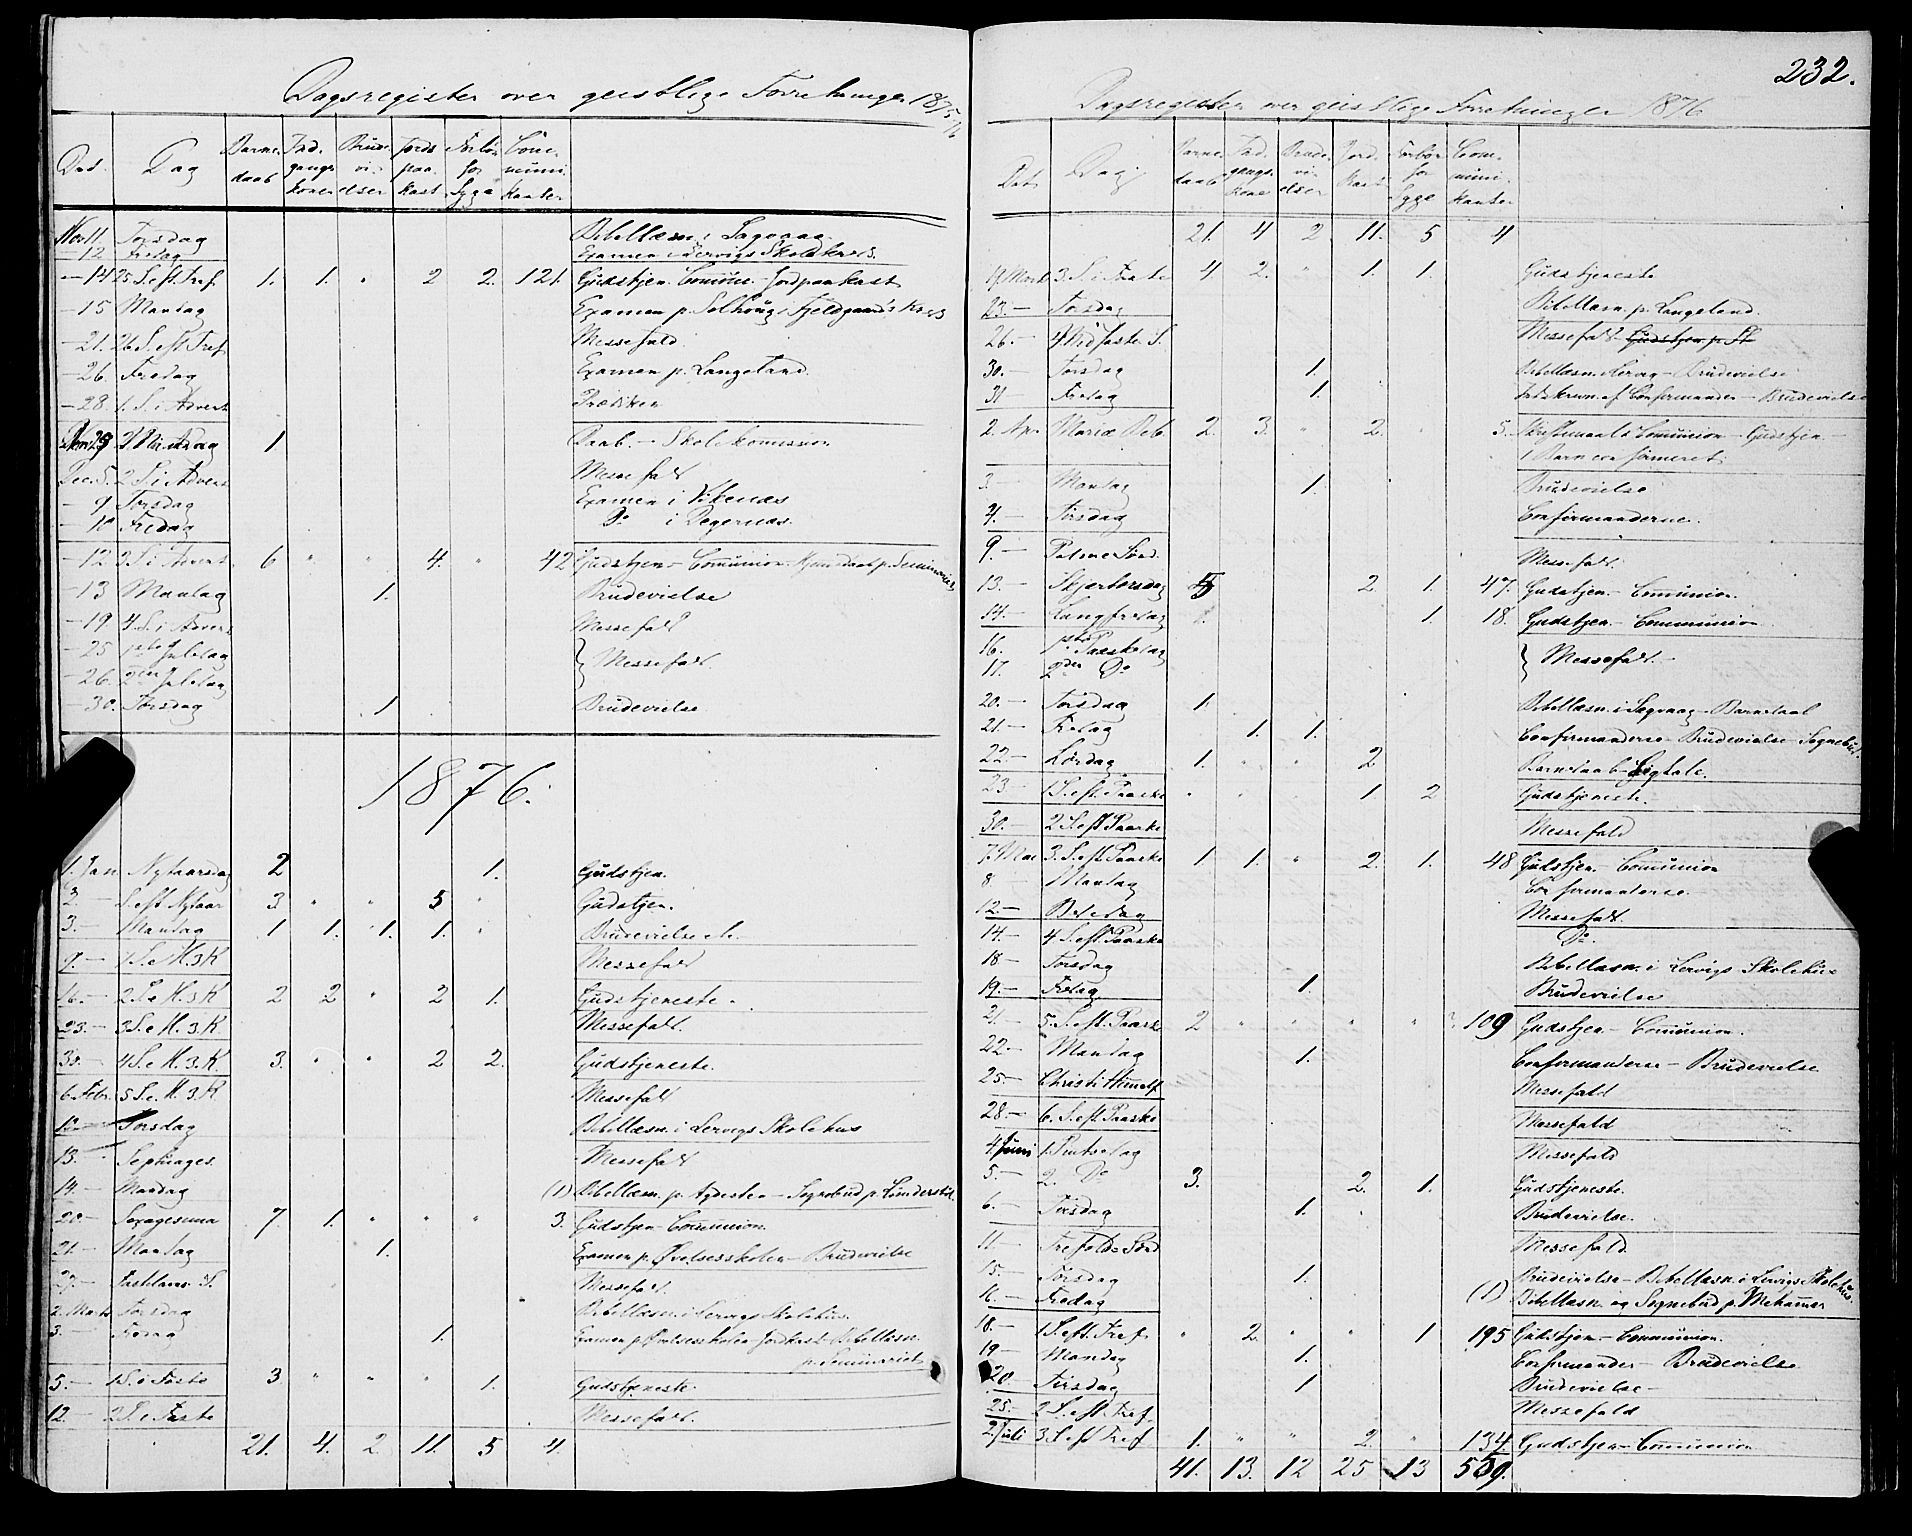 Dagsregister over geistlige Forretninger 1875/6
Dat. Dag Barne daab Ind gangs koner Brude vi elser Jords paa kast Forbön for Syge Com̄e muni kanter
Nov 11. Torsdag Bibellæsn. i Sagvaag
— 12 Fredag Examen i Lervigs Skolekreds
— 14 25 S. eft. Tref. 1. 1. " 2 2. 121. Gudstjen. Com̄un. Jordpaakast
— 15 Mandag Examen p. Kreds
— 21. 26 S. eft Tref Messefald
— 26. Fredag Examen p. Langeland.
— 28. 1. S. i Advent Prædiken
Mandag 1 Daab. — Skolekomission
Dec. 5. 2 S. i Advent Messefald
— 9 Torsdag Examen i Vikenæs
— 10 Fredag Do i Degernæs.
— 12 3 S. i Advent 6 " " 4. " 42 Gudstjen — Com̄union.
— 13 Mandag 1. Brudevielse
— 19 4. S. i Advent Messefald
— 25 1ste Juledag } Messefald.
— 26. 2den Juledag
— 30. Torsdag 1 Brudevielse
1876.
1. Jan Nytaarsdag 2 1. Gudstjen.
2. — S. eft Nytaar 3 " " 5 " Gudstjen.
3. — Mandag 1 1. 1. 1. " Brudevielse
9. — 1 S. e H. 3 K Messefald
16. — 2 S. e H. 3 K 2 2 " 2 1. Gudstjeneste.
23. — 3 S. e H. 3. K. Messefald.
30. — 4 S. e H. 3. K 3. " " 2 2. Gudstjeneste.
6. Febr. 5 S. e H. 3 K Messefald
Torsdag Bibellæsn. i Lervigs Skolehus
13. — Septuages. Messefald
14. — Mandag (1) Bibellæsn. p. — Sognebud p.
20. — Sexagesima 7 1. " " " 3. Gudstjen — Com̄union.
21. — Mandag 1. Examen p. Øvelsesskolen — Brudevielse
27. — Fastelavns S. Messefald.
2. Marts Torsdag Bibellæsn. i Lervigs Skolehus.
3. — Fredag 1. Examen p. Øvelsesskolen Jordkast. Bibellæsn.
p. Seminariet
5. — 1 S. i Faste 3 " " " 1. Gudstjeneste.
12. — 2 S. i Faste Messefald.
21. 4. 2 11. 5 4.
232.
Dagsregister over geistlige Forretninger 1876
Dat. Dag. Barne daab Ind. gangs. Kone Brude vi elser Jord. Kast Forbön for Syge Com. muni. kanter
21. 4 2 11. 5 4
19. Marts 3. S. i Faste 4 2. " 1. 1. Gudstjeneste
23. — Torsdag Bibellæsn. p. Langeland.
26. — 4 Midfaste S. Messefald
30. — Torsdag 1. Bibellæsn. — Brudevielse
31 Fredag 1. Indskrivn. af Confirmander — Brudevielse
2. Apr. Mariæ Beb. 2. 3. " 2. " 5. Skriftemaal & Com̄union — Gudstjen. —
1 Barn confirmeret.
3. — Mandag 1. Brudevielse
4. — Tirsdag Confirmanderne.
9. — Palme Sönd. Messefald.
13. — Skjertorsdag 5 2 1. 47. Gudstjen. — Com̄union.
14. — Langfredag 1. 1. 18. Gudstjen. — Com̄union
16. 1ste Paaskedag } Messefald. —
17. 2den Do
20. — Torsdag 1. Bibellæsn. i Sagvaag — Barnedaab
21. — Fredag 1. 1. Confirmanderne — Brudevielse — Sognebud.
22. — Lördag 1. " " 2 Barnedaab — Ligtale.
23 — 1 S. eft. Paaske " " " 1 2 Gudstjeneste.
30. — 2 S. eft Paaske Messefald
7. Mai 3. S. eft. Paaske 1. 1. " 2. 1. 48 Gudstjen. — Com̄union
8. Mandag Confirmanderne.
12. — Bededag Messefald.
14. — 4 S. eft. Paaske Do.
18 — Torsdag Bibellæsn. i Lervigs Skolehus
19. — Fredag 1. Brudevielse
21. — 5. S. eft. Paaske 2 " " " " 109 Gudstjen — Com̄union.
22. — Mandag 1. Confirmanderne — Brudevielse
25. — Christi Himelf. Messefald
28. — 6. S. eft Paaske Messefald
4 Juni 1 Pintsedag Messefald
5. — 2. Do 3. 2. 1. Gudstjeneste.
6. — Tirsdag 1. Brudevielse.
11 — Trefolds. Sönd. Messefald
15. — Torsdag 1. Brudevielse — Bibellæsn. i Lervigs Skolehus.
16. — Fredag (1) Bibellæsn. og Sognebud p.
18. — 1 S. eft. Tref. " 2. " " 1 195 Gudstjen. — Com̄union.
19 — Mandag 1. Confirmander — Brudevielse
20. Tirsdag 1 Brudevielse —
25. — 2 S. eft. Tref. Messefald
2. Juli 3 S. eft Tref. 1. " " 2. " 134 Gudstjen — Com̄union
41. 13. 12 25 13 559.